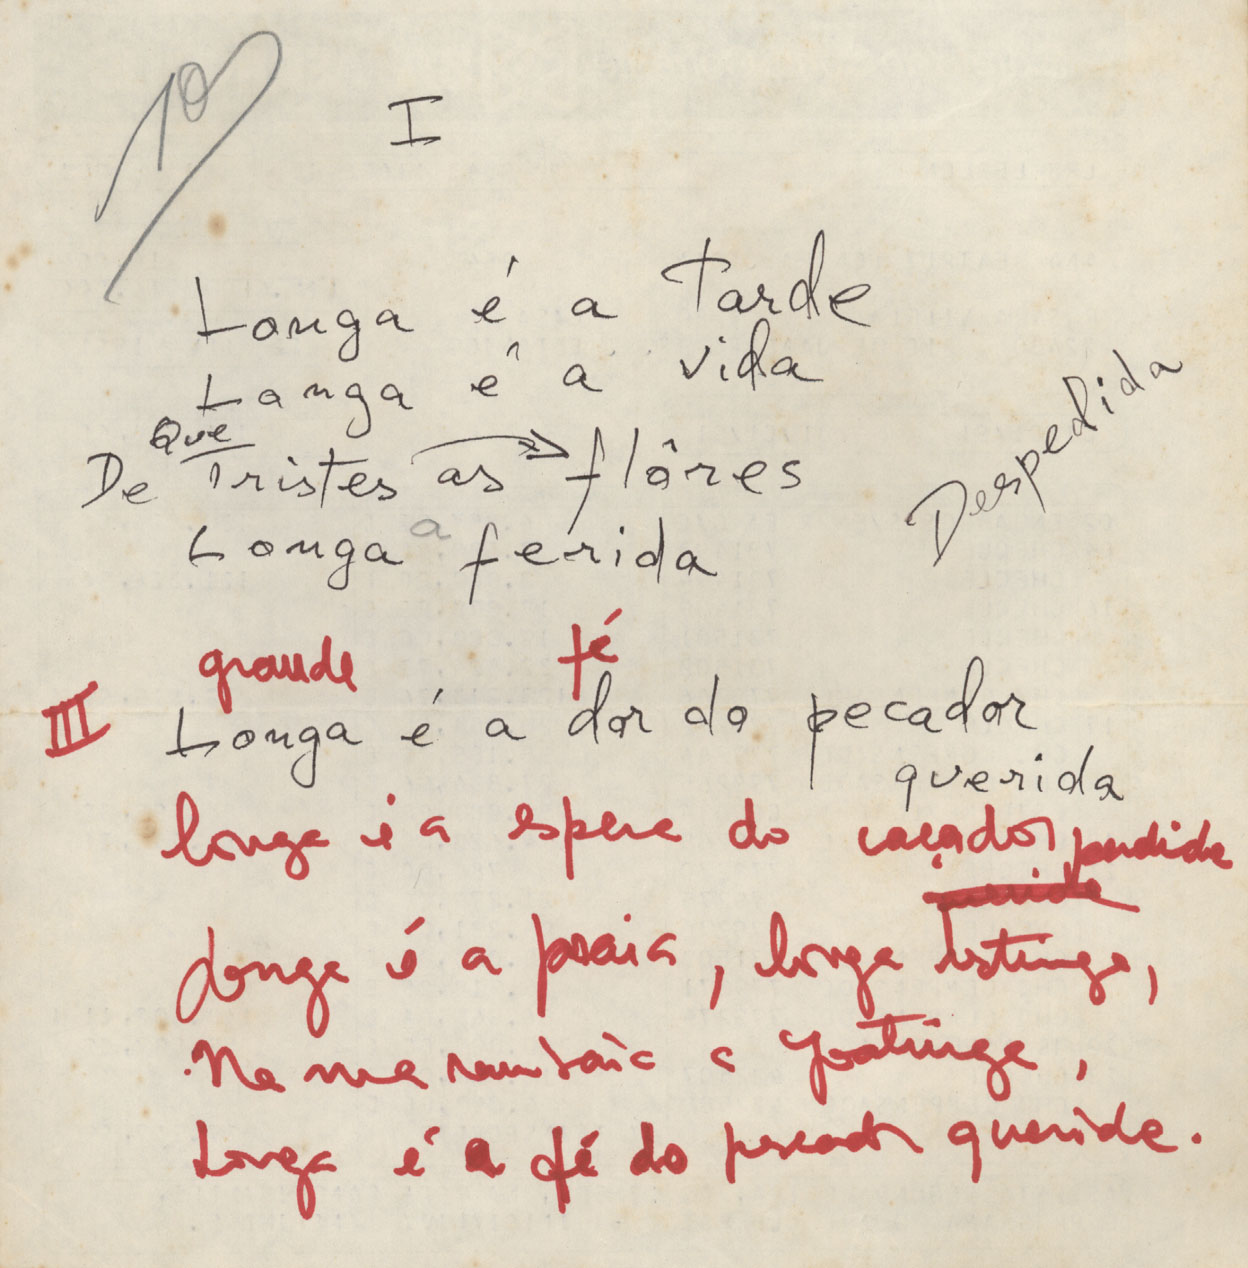 10
I
Longa é a Tarde
Longa é a vida
Que
De Tristes as flôres
Longa a ferida
Despedida
grande fé
III Longa é a dor do pecador
querida
longa é a espera do caçador perdida
Longa é a praia, longa restinga,
Na a Joatinga,
Longa é a fé do pescador querida.